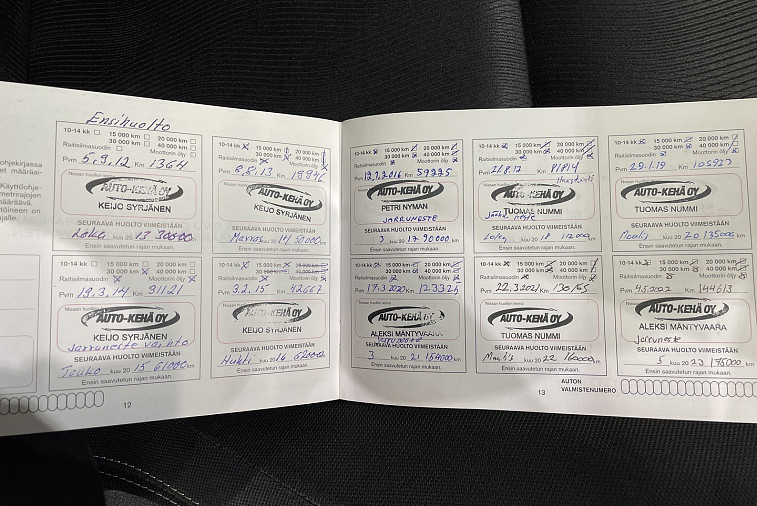 Ensihuolto
10-14 kk 15 000 km 20 000 km
30 000 km 40 000 km
Raitisilmasuodin Moottorin öljy
Pvm 5.9.12 Km 1364
AUTO-KEHÄ OY
KEIJO SYRJÄNEN
SEURAAVA HUOLTO VIIMEISTÄÄN
Loka kuu 20 13 30000 km
Ensin saavutetun rajan mukaan.
10-14 kk 15 000 km 20 000 km
30 000 km 40 000 km
Raitisilmasuodin Moottorin öljy
Pvm 19.3.14 Km 31121
AUTO-KEHÄ OY
KEIJO SYRJÄNEN
Jarruneste vaihto
SEURAAVA HUOLTO VIIMEISTÄÄN
Touko kuu 20 15 61000 km
Ensin saavutetun rajan mukaan.
10-14 kk 15 000 km 20 000 km
30 000 km 40 000 km
Raitisilmasuodin Moottorin öljy
AUTO-KEHÄ OY
KEIJO SYRJÄNEN
SEURAAVA HUOLTO VIIMEISTÄÄN
Marras kuu 20 14
Ensin saavutetun rajan mukaan.
10-14 kk 15 000 km 20 000 km
30 000 km 40 000 km
Raitisilmasuodin Moottorin öljy
Pvm 3.2.15 Km 42667
AUTO-KEHÄ OY
KEIJO SYRJÄNEN
SEURAAVA HUOLTO VIIMEISTÄÄN
Huhti kuu 20 16
Ensin saavutetun rajan mukaan.
12
10-14 kk 15 000 km 20 000 km
30 000 km 40 000 km
Raitisilmasuodin Moottorin öljy
Pvm 12.2.2016 Km 59225
AUTO-KEHÄ OY
PETRI NYMAN
JARRUNESTE
SEURAAVA HUOLTO VIIMEISTÄÄN
3 kuu 20 17 90000 km
Ensin saavutetun rajan mukaan.
10-14 kk 15 000 km 20 000 km
30 000 km 40 000 km
Raitisilmasuodin Moottorin öljy
Pvm 17.3.2020 Km 123325
AUTO-KEHÄ OY
ALEKSI MÄNTYVAARA
Jarruneste
SEURAAVA HUOLTO VIIMEISTÄÄN
3 kuu 20 21 154000 km
Ensin saavutetun rajan mukaan.
10-14 kk 15 000 km 20 000 km
30 000 km 40 000 km
Raitisilmasuodin Moottorin öljy
Pvm 21.8.17 Km
AUTO-KEHÄ OY
TUOMAS NUMMI
SEURAAVA HUOLTO VIIMEISTÄÄN
kuu 20 18 112000 km
Ensin saavutetun rajan mukaan.
10-14 kk 15 000 km 20 000 km
30 000 km 40 000 km
Raitisilmasuodin Moottorin öljy
Pvm 22.3.2021 Km 130165
AUTO-KEHÄ OY
TUOMAS NUMMI
SEURAAVA HUOLTO VIIMEISTÄÄN
kuu 20 22 160000 km
Ensin saavutetun rajan mukaan.
10-14 kk 15 000 km 20 000 km
30 000 km 40 000 km
Raitisilmasuodin Moottorin öljy
Pvm 29.1.19 Km 105927
AUTO-KEHÄ OY
TUOMAS NUMMI
SEURAAVA HUOLTO VIIMEISTÄÄN
kuu 20 20 135000 km
Ensin saavutetun rajan mukaan.
10-14 kk 15 000 km 20 000 km
30 000 km 40 000 km
Raitisilmasuodin Moottorin öljy
Pvm 4.5.2022 Km 144613
AUTO-KEHÄ OY
ALEKSI MÄNTYVAARA
Jarruneste
SEURAAVA HUOLTO VIIMEISTÄÄN
5 kuu 20 23 175000 km
Ensin saavutetun rajan mukaan.
13
AUTON
VALMISTENUMERO